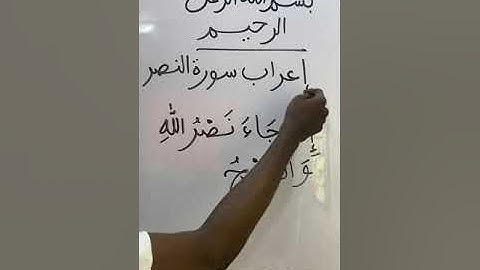 بسم الله الرحمن
الرحيم
إعراب سورة النصر
جَاءَ نَصْرُ اللهِ